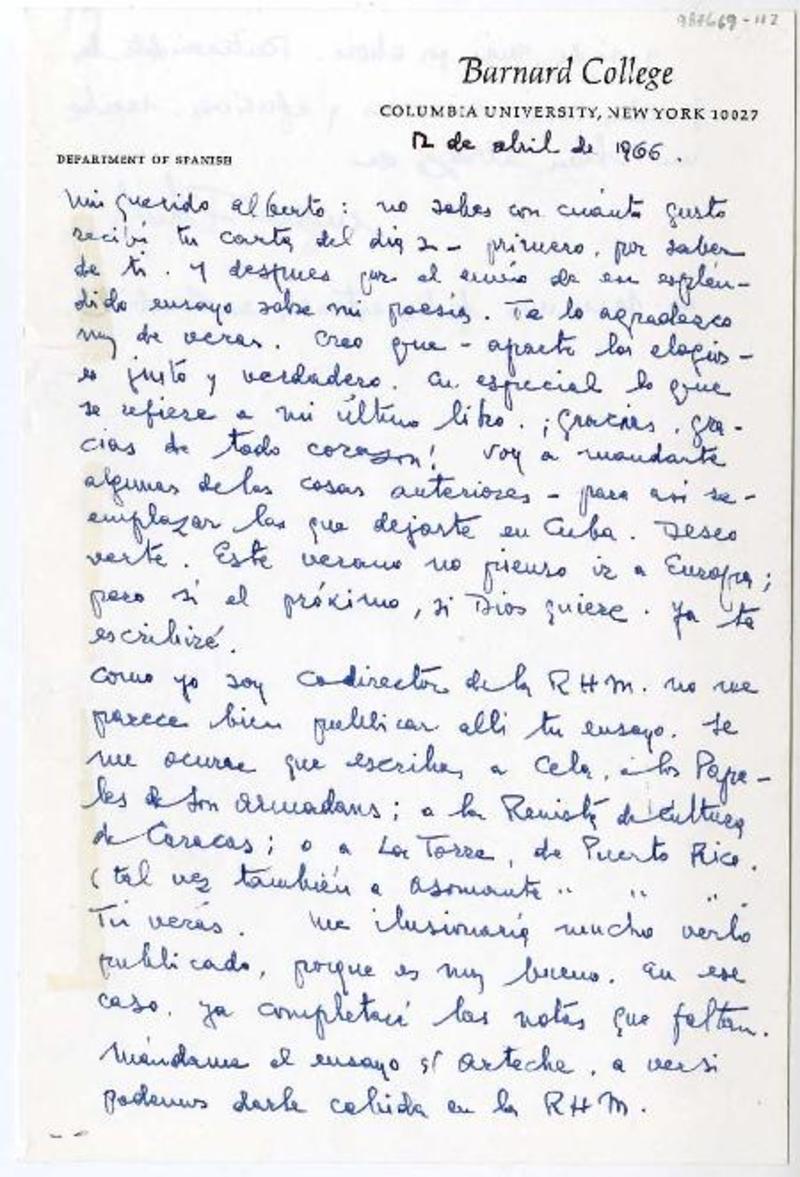 987669-112
Barnard College
COLUMBIA UNIVERSITY, NEW YORK 10027
12 de abril de 1966.
DEPARTMENT OF SPANISH
Mi querido Alberto: no sabes con cuánto gusto
recibí tu carta del día 2 - primero, por saber
de ti. Y despues por el envío de ese esplén-
dido ensayo sobre mi poesía. Te lo agradezco
muy de veras. Creo que - aparte los elogios -
es justo y verdadero. En especial lo que
se refiere a mi último libro. ¡Gracias, gra-
cias de todo corazon! Voy a mandarte
algunas de las cosas anteriores - para asi re-
emplazar las que dejaste en Cuba. Deseo
verte. Este verano no pienso ir a Europa;
pero si el próximo, si Dios quiere. Ya te
escribiré.
Como yo soy codirector de la R H M. no me
parece bien publicar alli tu ensayo. Se
me ocurre que escribas a Cela, a los Pape-
les de Son Armadans; a la Revista de Cultura
de Caracas; o a La Torre, de Puerto Rico.
(tal vez también a Asomante " " ".
Tú verás. Me ilusionaría mucho verlo
publicado, porque es muy bueno. En ese
caso, ya completaré las notas que faltan.
Mándame el ensayo s/ Arteche, a ver si
podemos darle cabida en la R H M.